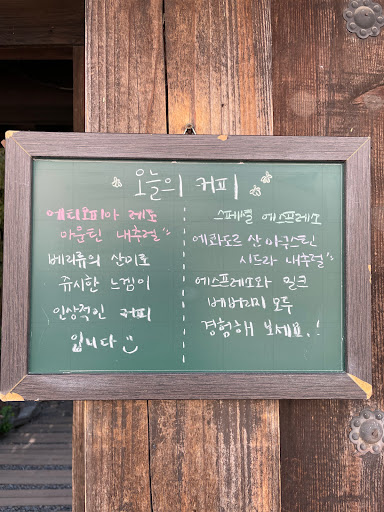 오늘의 커피
에티오피아 레포
마운틴 내추럴"
베리류의 산미로
쥬시한 느낌이
인상적인 커피
입니다
스페셜 에스프레소
에콰도르 산 아구스틴
시드라 내추럴"
에스프레소와 밀크
베버리지 모두
경험해 보세요.!